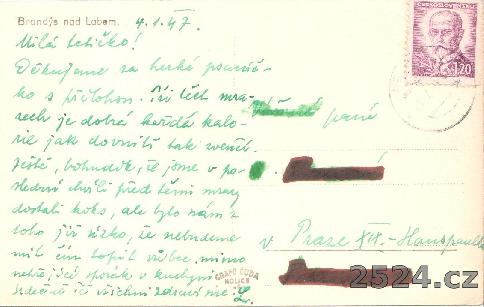 Brandýs nad Labem. 4.1.47.
Milá tetičko!
Děkujeme za hezké psaníč-
ko s přílohou. Při těch mra-
zech je dobrá každá kalo-
rie jak dovnitř tak zvenčí.
Ještě, bohudík, že jsme v po-
slední chvíli před těmi mrazy
dostali koks, ale bylo nám z
toho již úzko, že nebudeme
mít čím topit vůbec, mimo
v kuchyni.
Srdečně Tě všichni zdraví
ČESKOSLOVENSKO
1'20
paní
v Praze XII.-
GRAFO ČUDA
HOLICE
2524.cz